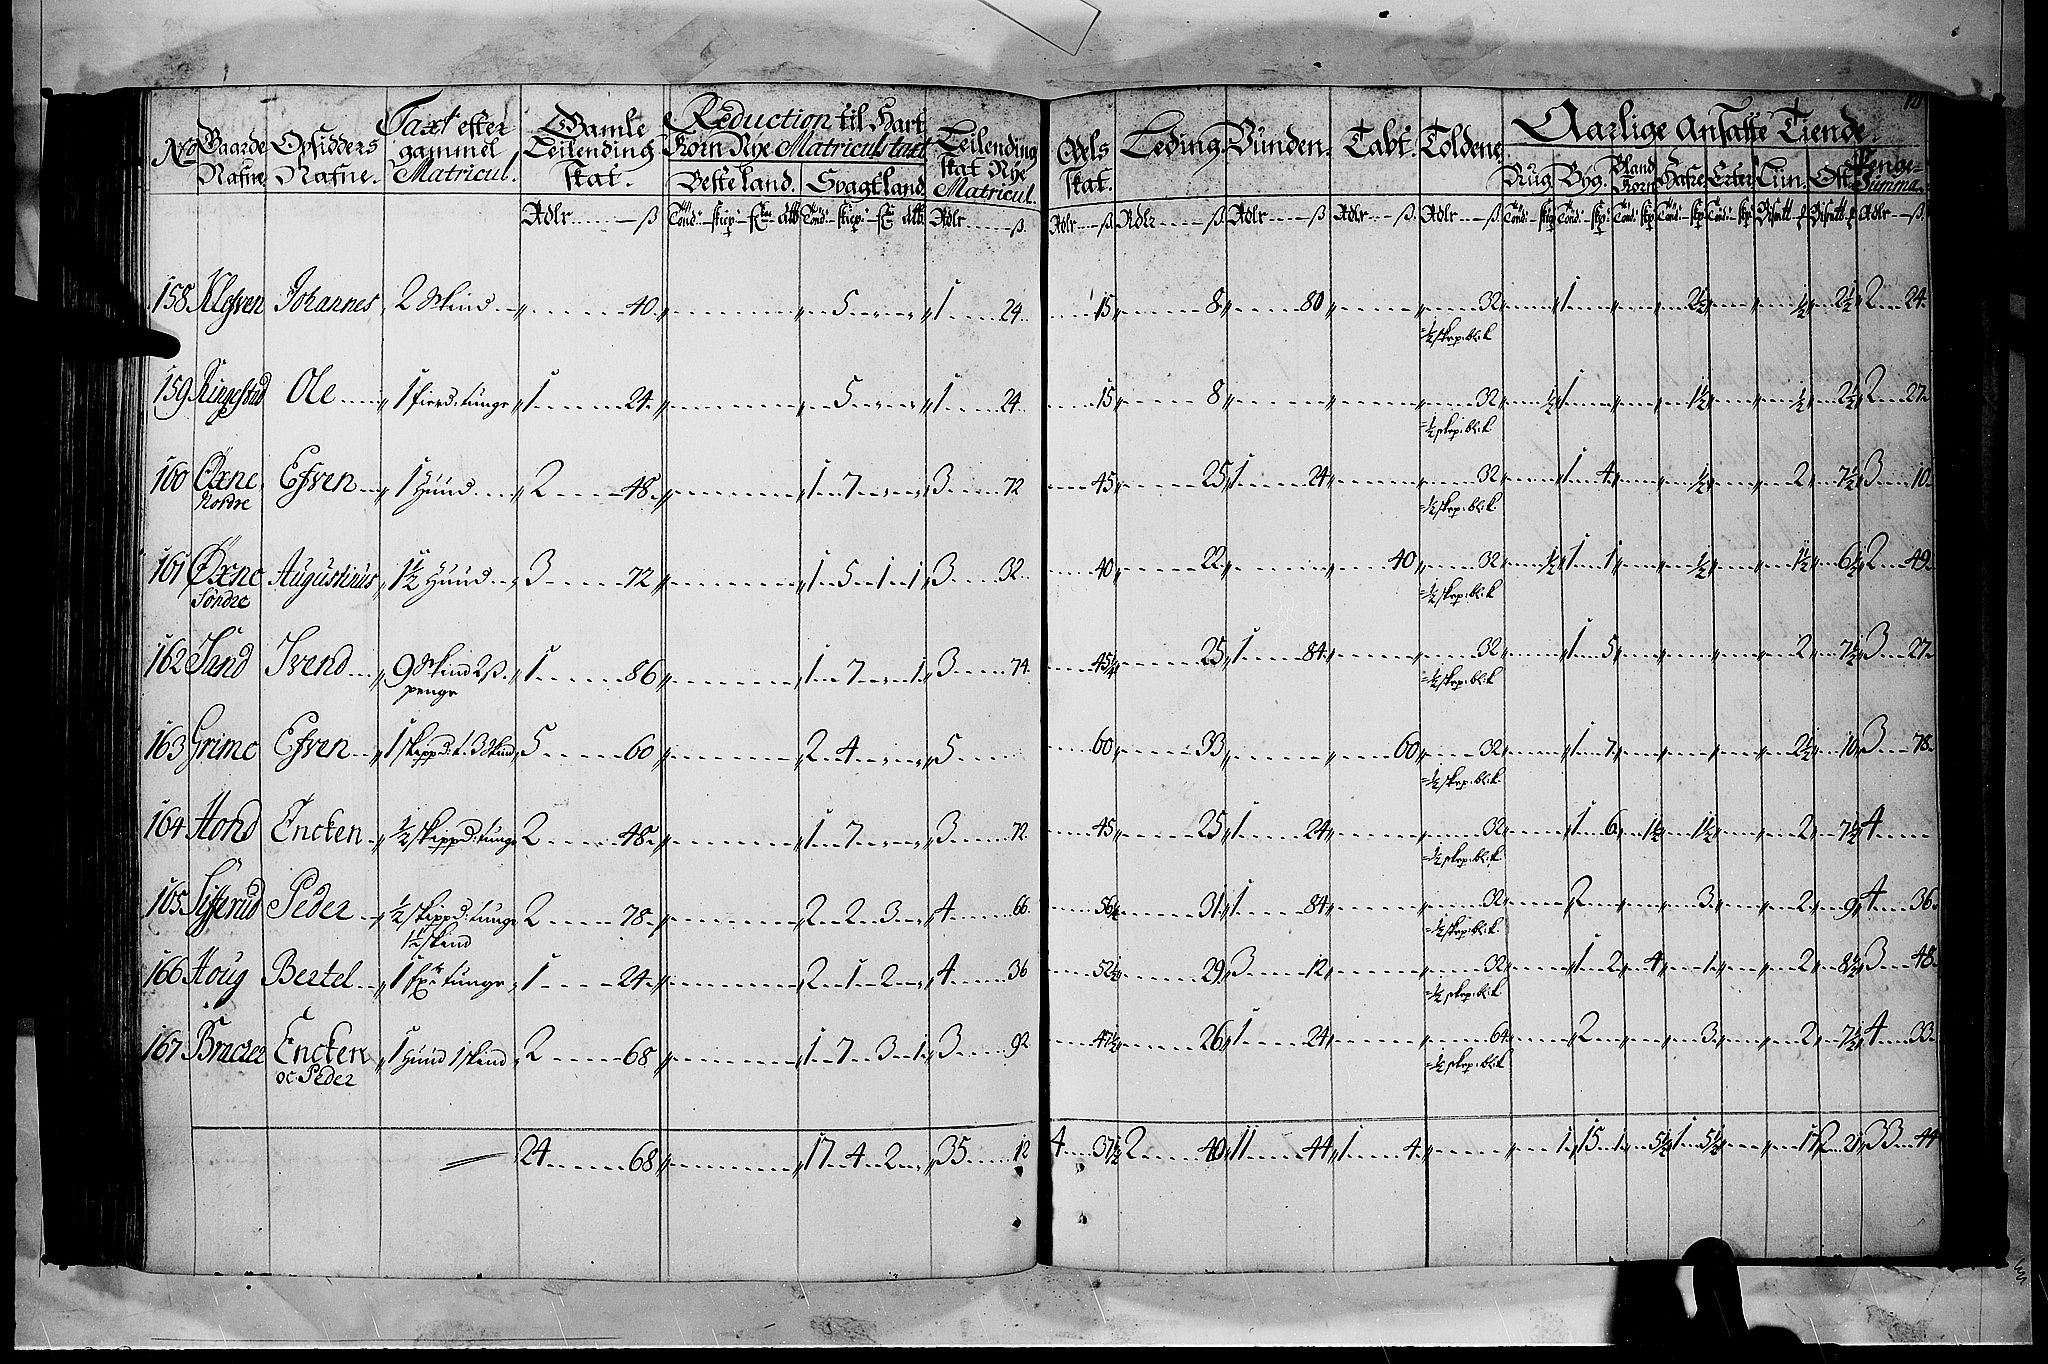 10
No Gaarde Nafne Opsidders Nafne Taxt efter gammel Matricul. Gamle Leilending Skat. Reduction til Hart Korn Nye Matriculs taxt Leilending skat Nye Matricul. Odels Skat. Leding. Vunden. Tabt. Toldene Aarlige Ansatte Tiende
Beste land. Svagt land Rug Byg Bland Korn Hafre Erter Liin Ost Penge Summa
Rdlr ß Tønd: skiep: Rdlr ß Rdlr ß Rdlr ß Rdlr ß Rdlr ß Rdlr ß Rdlr ß
158 Klefven Johannes 2 Skind 40 5 1 24 15 8 80 32 1 2½ ½ 2½ 2 24
½ skep: blik
159 Ringstad Ole 1 fierd: tunge 1 24 5 1 24 15 8 32 ½ 1 1½ ½ 2½ 2 27
½ skep: blik
160 Øxne Efven 1 Hund 2 48 1 7 3 72 45 25 1 24 32 1 4 ½ 2 7½ 3 10
Nordre ½ skep: blik
161 Øxne Augustinus 1½ Hund 3 72 1 5 1 1 3 32 40 22 40 32 ½ 1 1 ½ 1½ 6½ 2 49
Søndre ½ skep: blik
162 Sand Svend 9 Skind 2 ß 1 86 1 7 1 3 74 45¼ 25 1 84 32 1 5 2 7½ 3 27
penge ½ skep: blik
163 Grime Efven 1 skippd: t. 3 skind 5 60 2 4 5 60 33 60 32 1 7 2½ 10 3 78
½ skep: blik
164 Hond Encken ½ skippd: tunge 2 48 1 7 3 72 45 25 1 24 32 1 6 1½ 1½ 2 7½ 4
½ skep: blik
165 Sifferud Peder ½ skippd: tunge 2 78 2 2 3 4 66 56¼ 31 1 84 32 2 3 2 9 4 36
1½ skind ½ skep: blik
166 Houg Bertel 1 tunge 1 24 2 1 2 4 36 52½ 29 3 12 32 1 2 4 1 2 8½ 3 48
½ skep: blik
167 Bracker Encken 1 Hund 1 skind 2 68 1 7 3 1 3 92 47½ 26 1 24 64 2 3 2 7½ 4 33
oc Peder ½ skep: blik
24 68 17 4 2 35 12 4 37½ 2 40 11 44 1 4 1 15 1 5½ 1 5½ 17 2 21 33 44